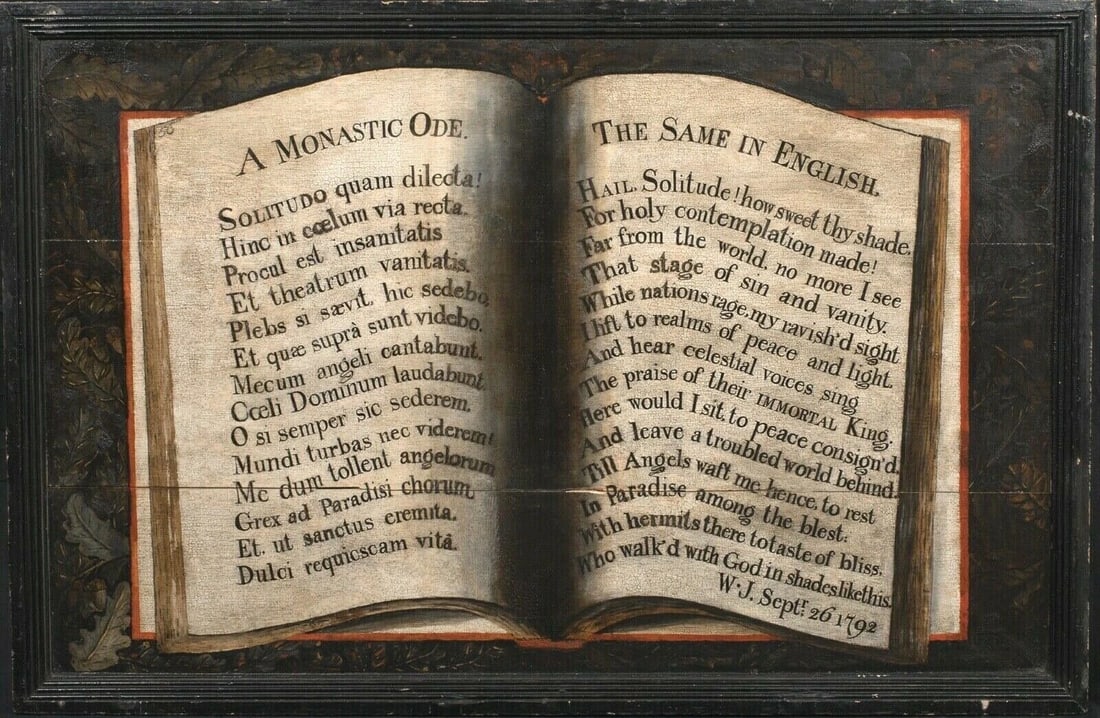 A MONASTIC ODE.
SOLITUDO quam dilecta!
Hinc in cœlum via recta.
Procul est insanitatis
Et theatrum vanitatis.
Plebs si sævit, hic sedebo,
Et quæ suprà sunt videbo.
Mecum angeli cantabunt.
Cœli Dominum laudabunt
O si semper sic sederem.
Mundi turbas nec viderem!
Me dum tollent angelorum
Grex ad Paradisi chorum,
Et, ut sanctus eremita,
Dulci requiescam vitâ.
THE SAME IN ENGLISH.
HAIL, Solitude! how sweet thy shade,
For holy contemplation made!
Far from the world, no more I see
That stage of sin and vanity.
While nations rage, my ravish'd sight
I lift to realms of peace and light.
And hear celestial voices sing
The praise of their IMMORTAL King.
Here would I sit, to peace consign'd,
And leave a troubled world behind,
Till Angels waft me hence, to rest
In Paradise among the blest;
With hermits there to taste of bliss,
Who walk'd with God in shades like this.
W. J. Septr. 26 1792